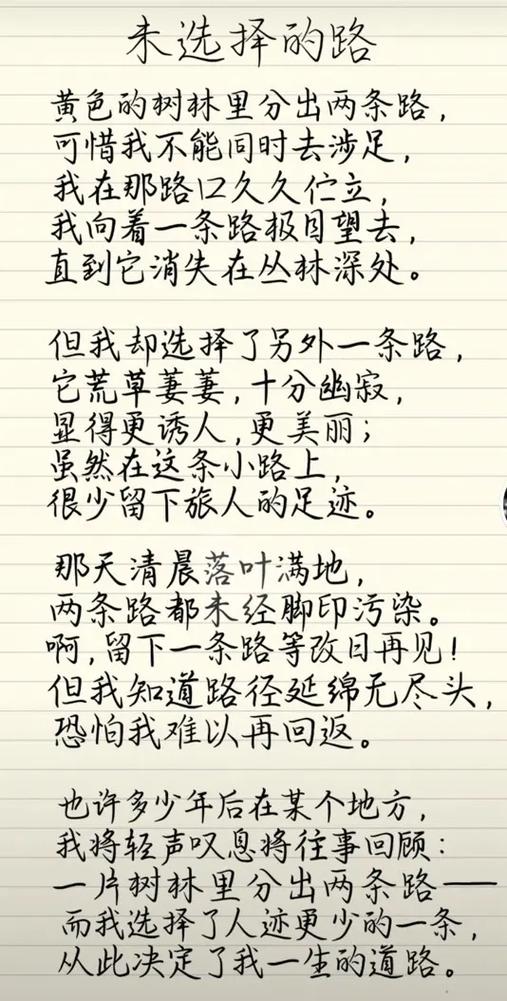 未选择的路
黄色的树林里分出两条路，
可惜我不能同时去涉足，
我在那路口久久伫立，
我向着一条路极目望去，
直到它消失在丛林深处。
但我却选择了另外一条路，
它荒草萋萋，十分幽寂，
显得更诱人，更美丽；
虽然在这条小路上，
很少留下旅人的足迹。
那天清晨落叶满地，
两条路都未经脚印污染。
啊，留下一条路等改日再见！
但我知道路径延绵无尽头，
恐怕我难以再回返。
也许多少年后在某个地方，
我将轻声叹息将往事回顾：
一片树林里分出两条路——
而我选择了人迹更少的一条，
从此决定了我一生的道路。